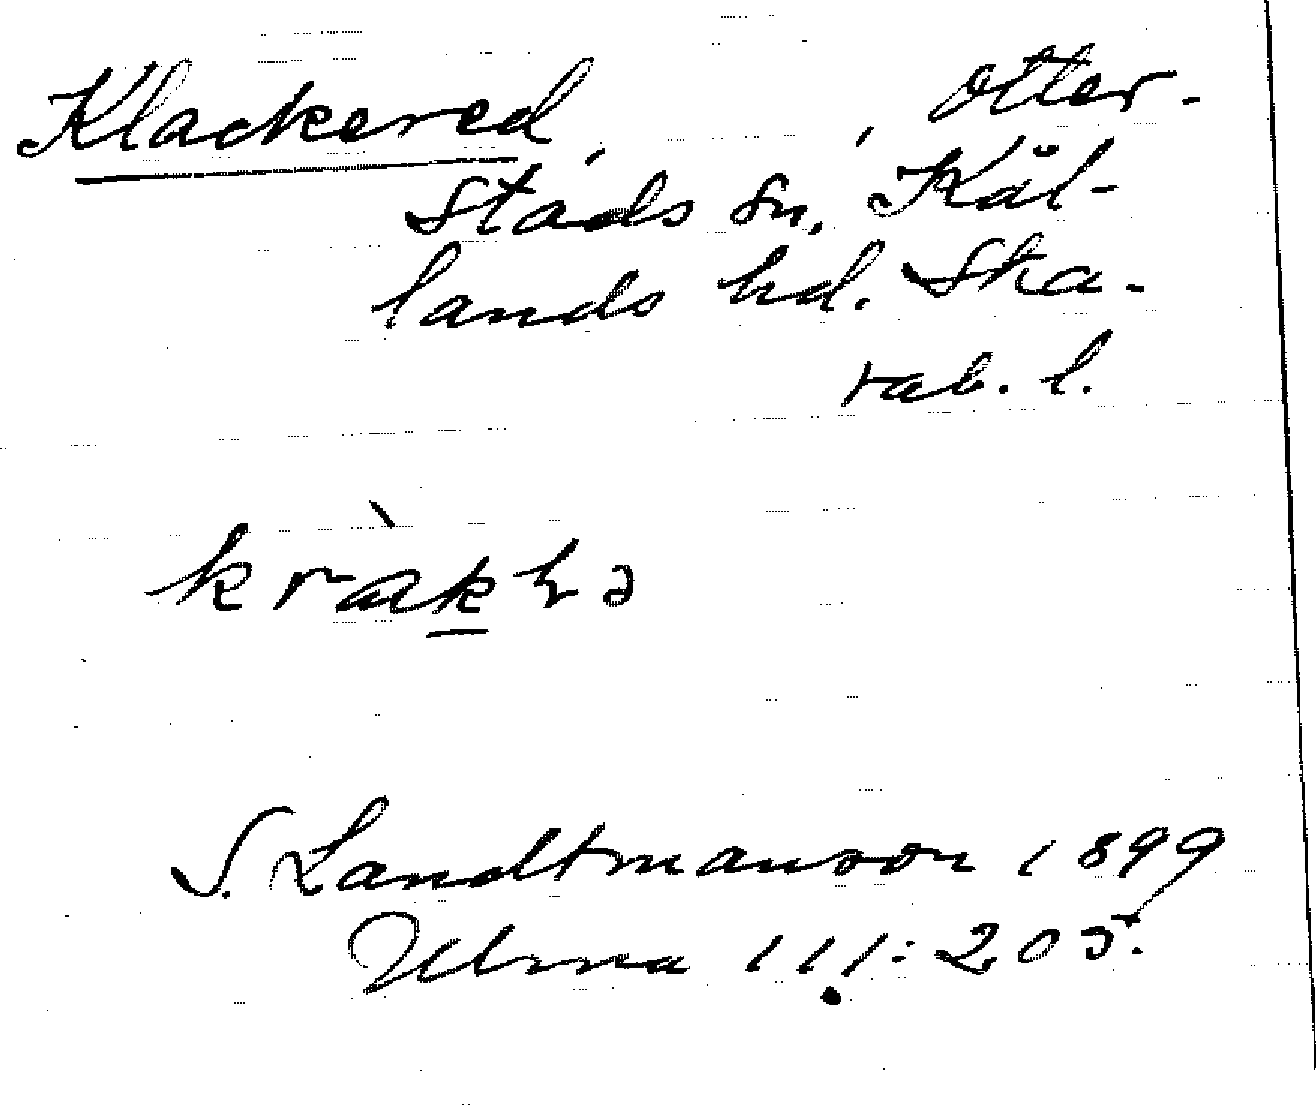 Klackered, , Otter-
stads sn, Kål-
lands hd. Ska-
rab. l.
S. Landtmanson 1899
Ulma 111:205.